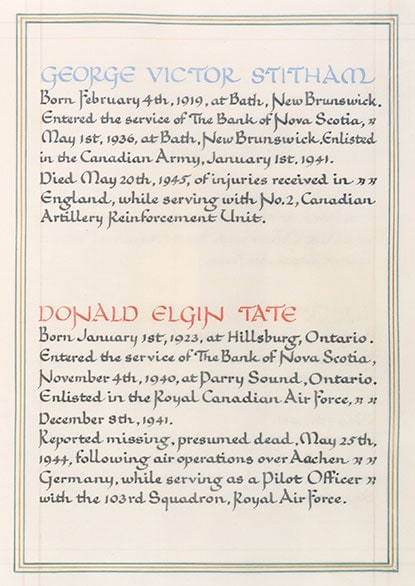 GEORGE VICTOR STITHAM
Born February 4th, 1919, at Bath, New Brunswick.
Entered the service of The Bank of Nova Scotia,
May 1st, 1936, at Bath, New Brunswick. Enlisted
in the Canadian Army, January 1st, 1941.
Died May 20th, 1945, of injuries received in
England, while serving with No. 2, Canadian
Artillery Reinforcement Unit.
DONALD ELGIN TATE
Born January 1st, 1923, at Hillsburg, Ontario.
Entered the service of The Bank of Nova Scotia,
November 4th, 1940, at Parry Sound, Ontario.
Enlisted in the Royal Canadian Air Force,
December 8th, 1941.
Reported missing, presumed dead, May 25th,
1944, following air operations over Aachen
Germany, while serving as a Pilot Officer
with the 103rd Squadron, Royal Air Force.